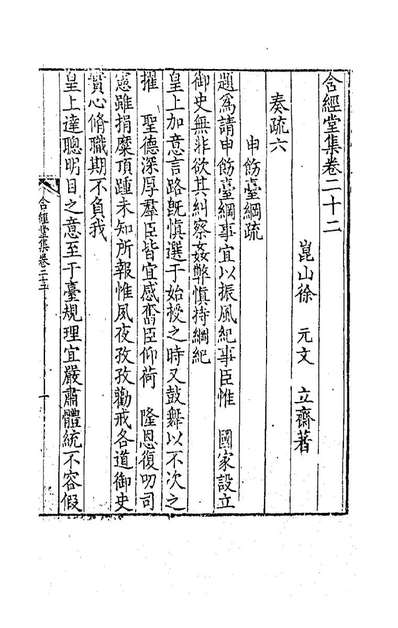 含經堂集卷二十二
崑山徐 元文 立齋著
奏疏六
申飭臺綱疏
題爲請申飭臺綱事宜以振風紀事臣惟 國家設立
御史無非欲其糾察姦弊慎持綱紀
皇上加意言路旣慎選于始授之時又鼓舞以不次之
擢 聖德深厚羣臣皆宜感奮臣仰荷 隆恩復叨司
憲雖捐糜頂踵未知所報惟夙夜孜孜勸戒各道御史
實心脩職期不負我
皇上達聰明目之意至于臺規理宜嚴肅體統不容假
含經堂集卷二十二
一